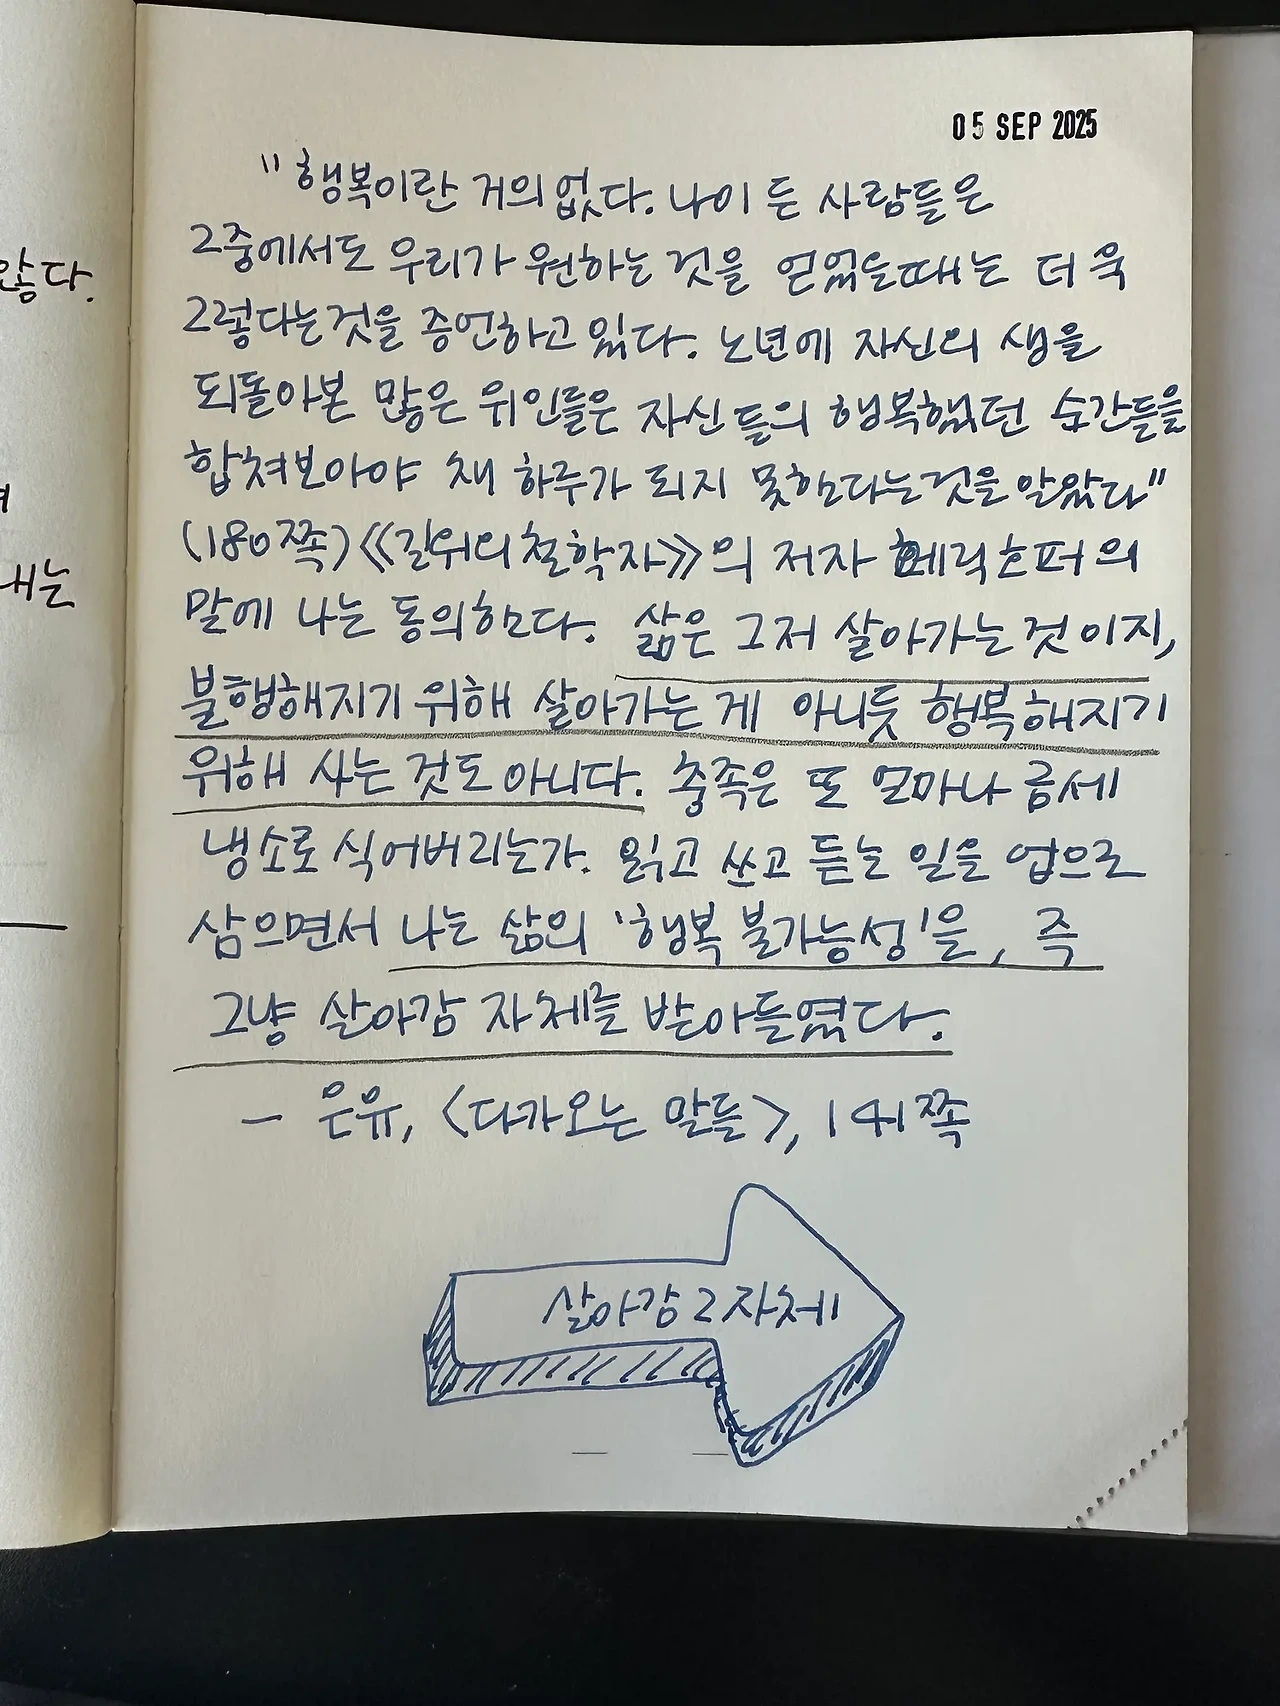 05 SEP 2025
"행복이란 거의 없다. 나이 든 사람들은
그중에서도 우리가 원하는 것을 얻었을때는 더욱
그렇다는것을 증언하고 있다. 노년에 자신의 생을
되돌아본 많은 위인들은 자신들의 행복했던 순간들을
합쳐보아야 채 하루가 되지 못한다는것을 알았다"
(180쪽)《길위의철학자》의 저자 에릭호퍼의
말에 나는 동의한다. 삶은 그저 살아가는 것이지,
불행해지기 위해 살아가는 게 아니듯 행복해지기
위해 사는 것도 아니다. 충족은 또 얼마나 금세
냉소로 식어버리는가. 읽고 쓰고 듣는 일을 업으로
삼으면서 나는 삶의 '행복 불가능성'을, 즉
그냥 살아감 자체를 받아들였다.
— 은유, <다가오는 말들>, 141쪽
살아감 그 자체
않다.
내는